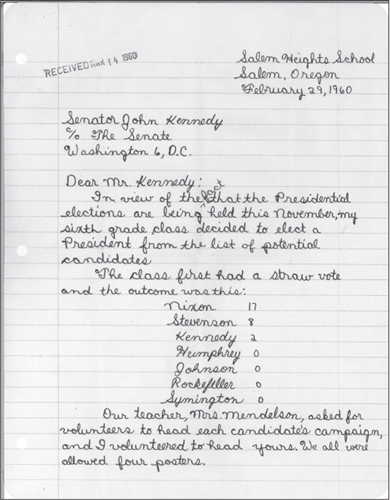 RECEIVED MAR 14 1960
Salem Heights School
Salem, Oregon
February 29, 1960
Senator John Kennedy
c/o The Senate
Washington 6, D.C.
Dear Mr. Kennedy:
In view of the fact that the Presidential
elections are being held this November, my
sixth grade class decided to elect a
President from the list of potential
candidates
The class first had a straw vote
and the outcome was this:
Nixon 17
Stevenson 8
Kennedy 2
Humphrey 0
Johnson 0
Rockefeller 0
Symington 0
Our teacher, Mrs. Mendelson, asked for
volunteers to head each candidate's campaign,
and I volunteered to head yours. We all were
allowed four posters.